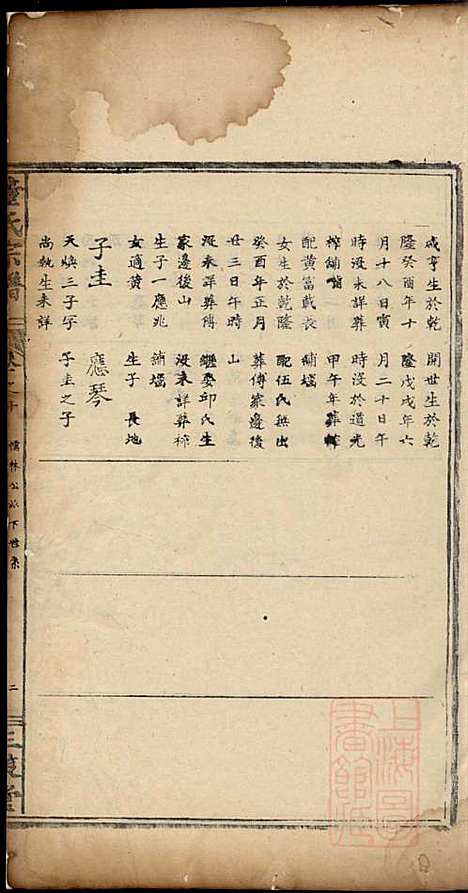 咸亨生於乾
隆癸酉年十
月十八日寅
時没未詳葬
樟鋪嘴
配黃富戴長
女生於乾隆
癸酉年正月
廿三日午時
没未詳葬傅
家邊後山
生子一應兆
女適黃
子圭
天煥三子字
尚執生未詳
開世生於乾
隆戊戌年六
月二十日午
時没於道光
甲午年葬樟
鋪壋
配伍氏無出
葬傅家邊後
山
繼娶邱氏生
没未詳葬樟
鋪壋
生子 長地
應琴
子圭之子
氏宗譜
儒林公派下世系
二
上海圖書館藏